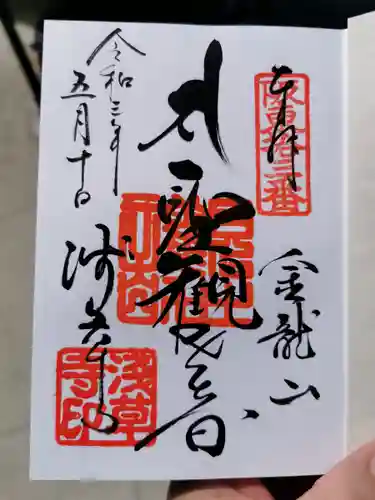 奉拝
坂東拾三番
金龍山
聖観世音
浅草寺
浅草寺印
令和三年
五月十日